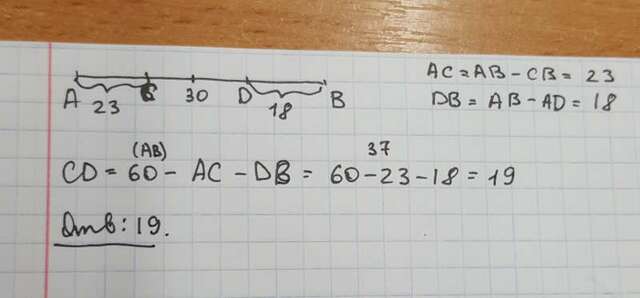 AC = AB - CB = 23
DB = AB - AD = 18
A 23 C 30 D 18 B
(AB) 37
CD = 60 - AC - DB = 60 - 23 - 18 = 19
Отв: 19.